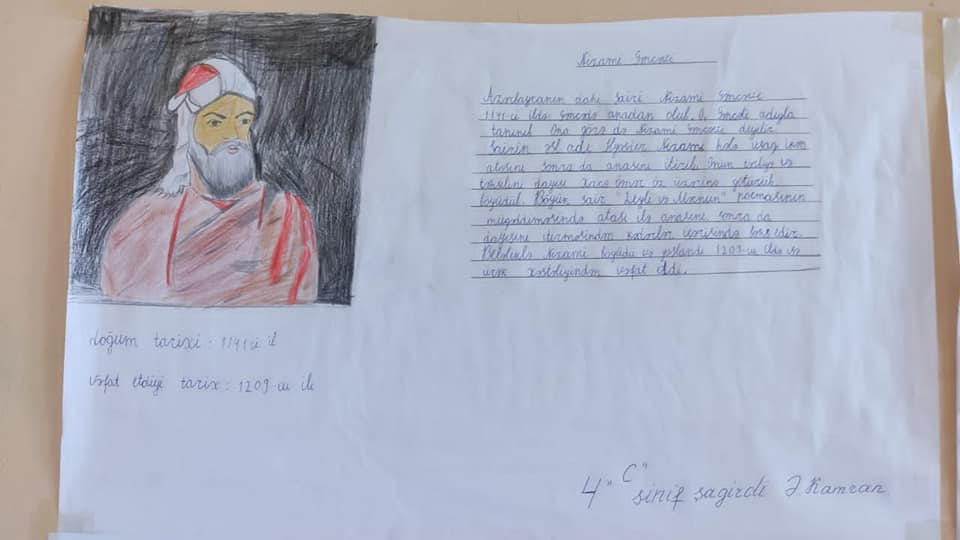 Nizami Gəncəvi
Azərbaycanın dahi şairi Nizami Gəncəvi
1141-ci ildə Gəncədə anadan olub. O, Gəncəli adıyla
tanınıb Ona görə də Nizami Gəncəvi deyilir
Şairin əsl adı İlyasdır Nizami hələ uşaq ikən
atasını sonra da anasını itirib Onun tərbiyə və
təhsilini dayısı Xacə Ömər öz üzərinə götürüb
böyüdüb. Böyük şair "Leyli və Məcnun" poemasının
müqəddiməsində atası ilə anasını sonra da
dayısını itirməsindən kədərlə bəhs edir.
Beləliklə Nizami böyüdü və yaşlandı 1209-cu ildə və
ürək xəstəliyindən vəfat etdi.
doğum tarixi: 1141-ci il
vəfat etdiyi tarix: 1209-cu il
4 "C" sinif şagirdi Ə. Kamran